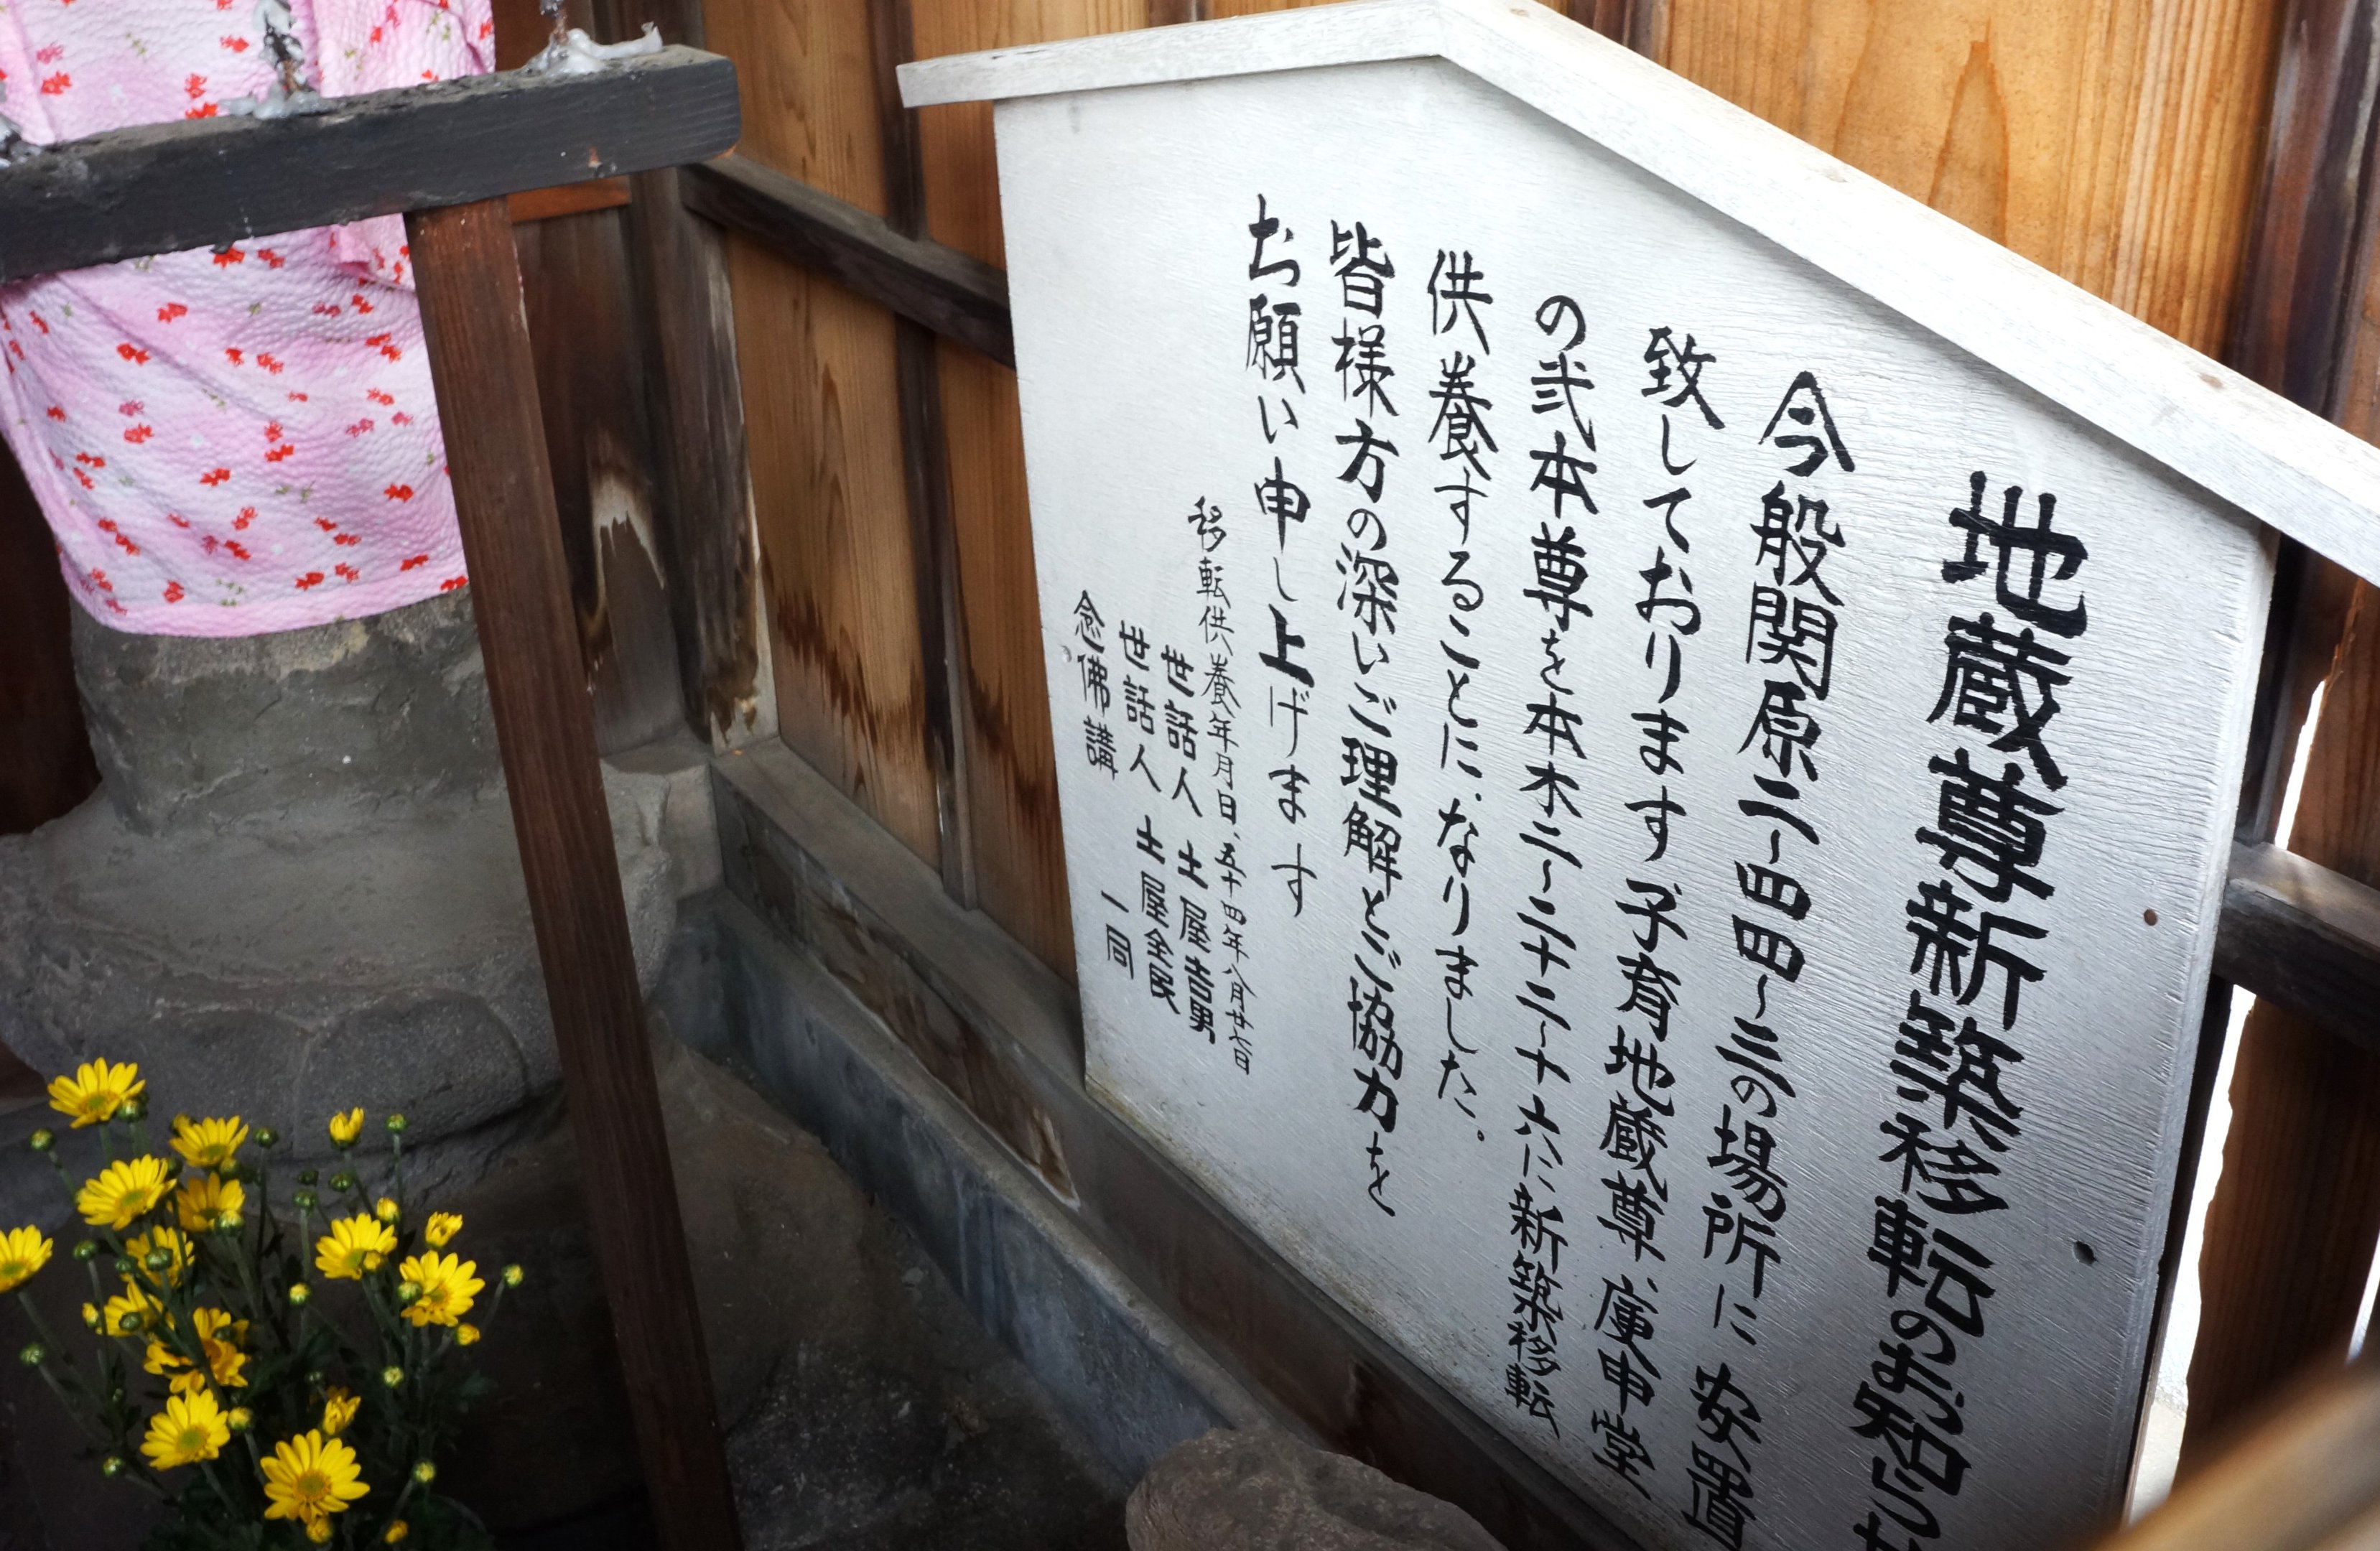 地蔵尊新築移転のお知らせ
今般関原二〜四四〜三の場所に安置
致しております子育地蔵尊、庚申堂
の弐本尊を本木二〜二十二〜十六に新築移転
供養することに、なりました。
皆様方の深いご理解とご協力を
お願い申し上げます
移転供養年月日、五十四年八月廿七日
世話人 土屋吉男
世話人 土屋金民
念佛講 一同